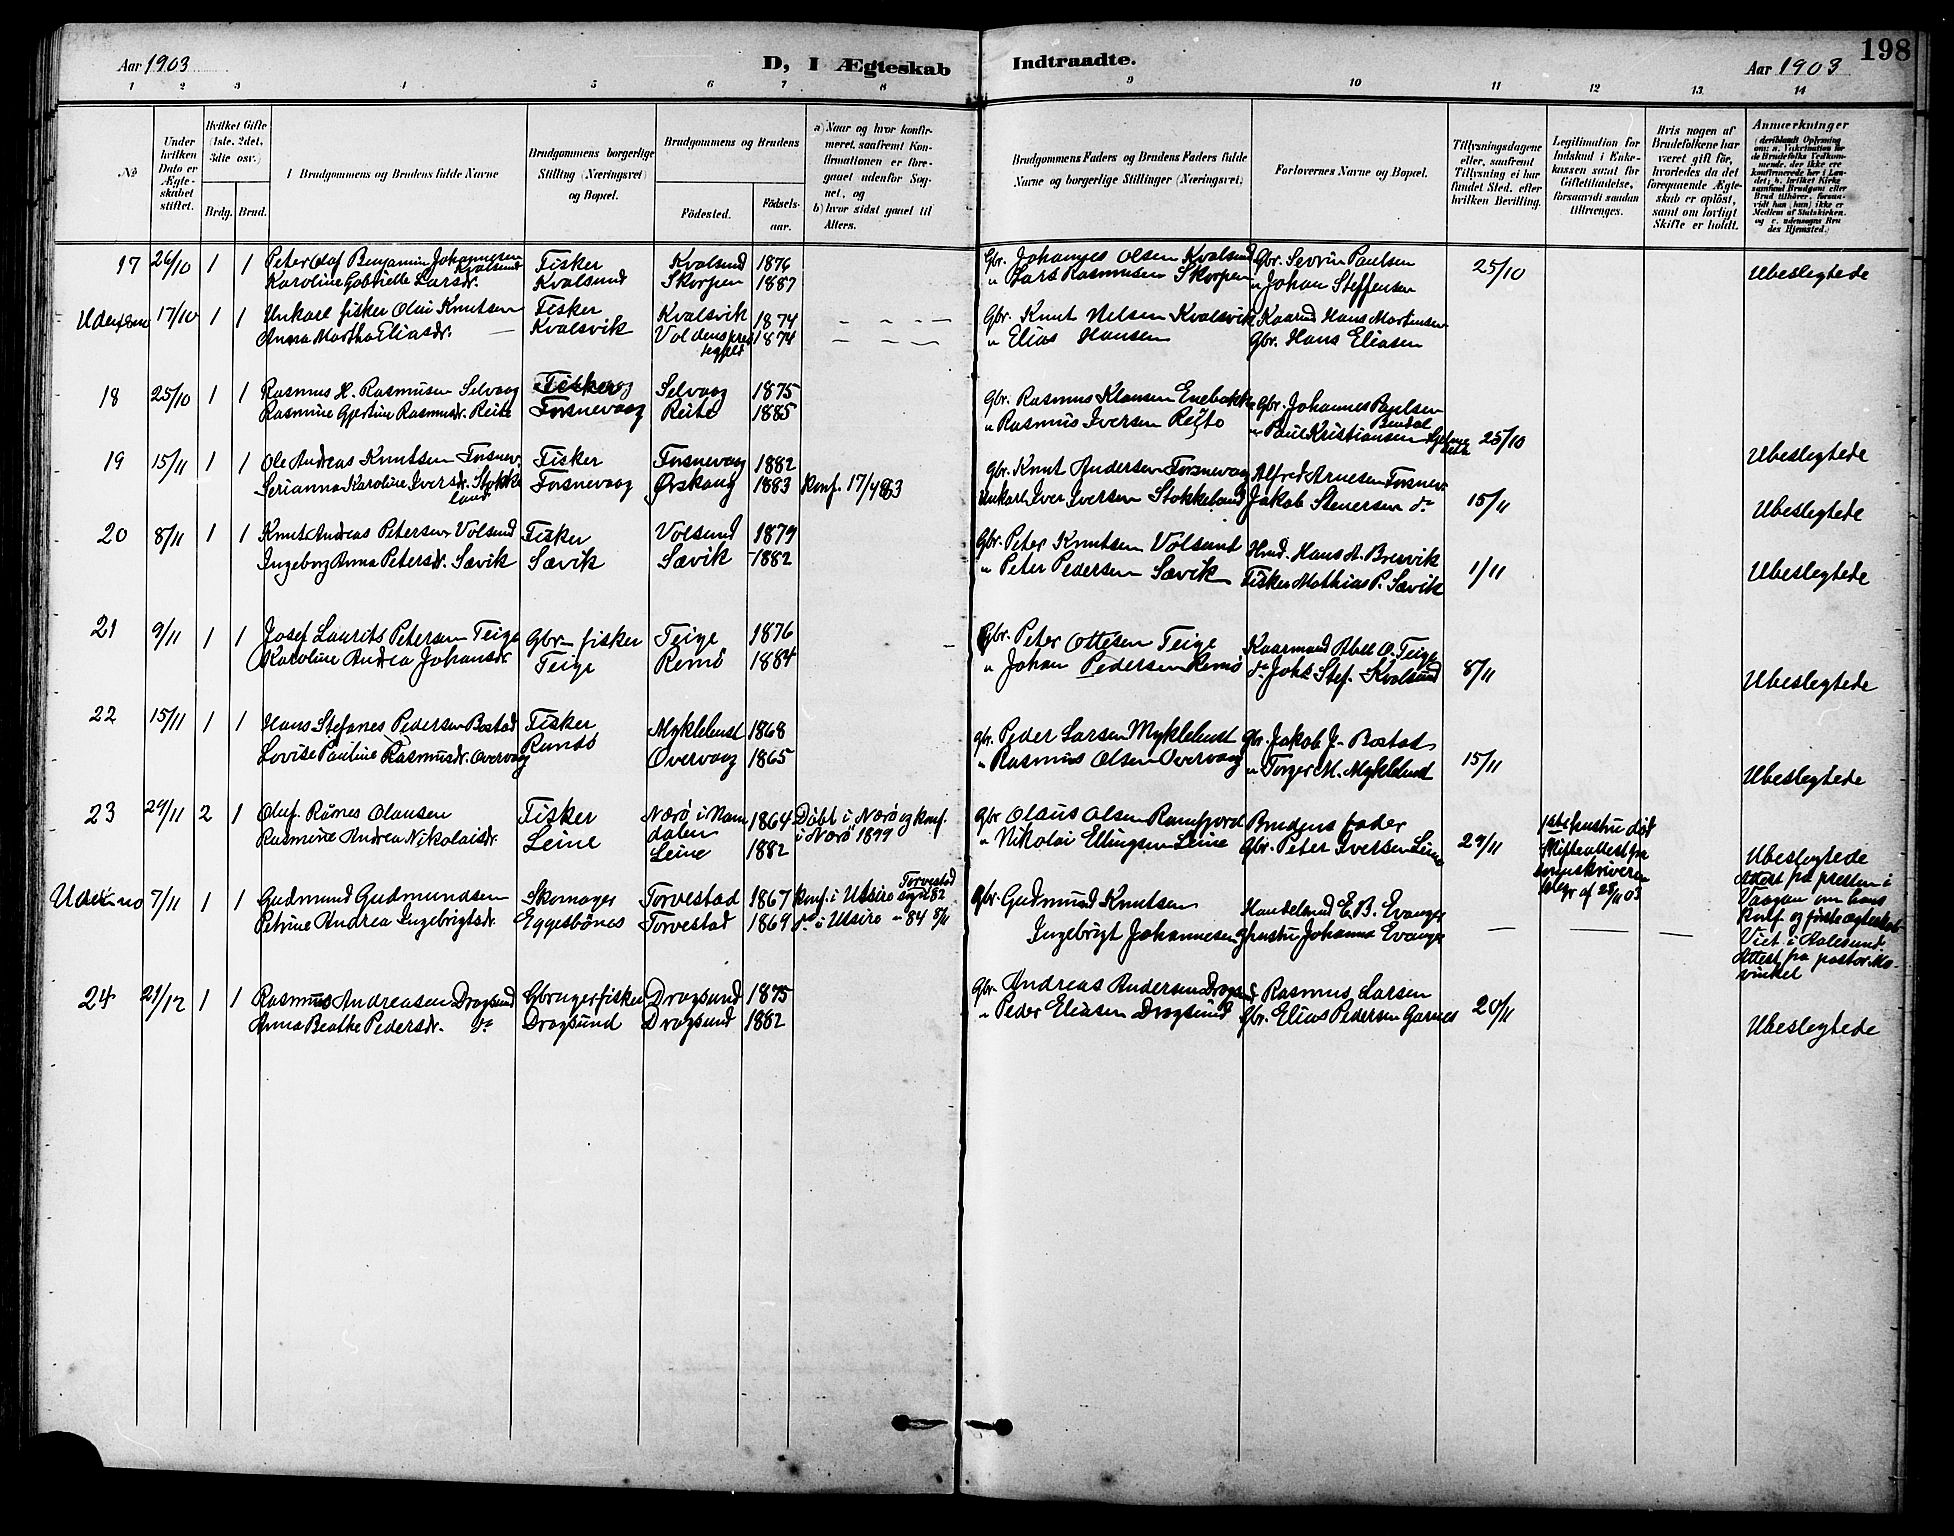 198
Aar 1903
D, I Ægteskab
Indtraadte.
Aar 1903
1 2 3 4 5 6 7 8 9 10 11 12 13 14
No
Under hvilken Dato er Ægteskabet stiftet.
Hvilket Gifte (1ste, 2det, 3die osv.)
Brdg. Brud.
I Brudgommens og Brudens fulde Navne
Brudgommens borgerlige Stilling (Næringsvei) og Bopæl.
Brudgommens og Brudens
Födested.
Födselsaar.
a) Naar og hvor konfirmeret, saafremt Konfirmationen er foregaaet udenfor Sognet, og
b) hvor sidst gaaet til Alters.
Brudgommens Faders og Brudens Faders fulde Navne og borgerlige Stillinger (Næringsvei)
Forlovernes Navne og Bopæl.
Tillysningsdagene eller, saafremt Tillysning ei har fundet Sted, efter hvilken Bevilling.
Legitimation for Indskud i Enkekassen samt for Giftetilladelse, forsaavidt saadan tiltrænges.
Hvis nogen af Brudefolkene har været gift för, hvorledes da det foregaaende Ægteskab er oplöst, samt om lovligt Skifte er holdt.
Anmærkninger
17 26/10 1 1 Peter Olaf Benjamin Johannesen Kvalsund Fisker Kvalsund 1876 Gbr. Johannes Olsen Kvalsund Gbr. Sevrin Paulsen 25/10 Ubeslegtede
Karoline Gabrielle Larsdr. Kvalsund Skorpen 1887 " Lars Rasmussen Skorpen " Johan Steffensen
17/10 1 1 Unkarl fisker Olai Knutsen Fisker Kvalsvik 1874 Gbr. Knut Nelsen Kvalsvik Kaarmd Hans Martinsen
Anna Martha Eliasdr. Kvalsvik Voldens 1874 " Elias Hansen Gbr. Hans Eliasen
18 25/10 1 1 Rasmus H. Rasmusen Selvaag Fisker Selvaag 1875 Gbr. Rasmus Klausen Gbr. Johannes Paulsen
Rasmine Gjertine Rasmusdr. Reite Fosnevaag Reite 1885 " Rasmus Iversen " Paul Kristiansen 25/10 Ubeslegtede
19 15/11 1 1 Ole Andreas Knutsen Fosnev. Fisker Fosnevaag 1882 Gbr. Knut Andersen Fosnevaag Alfred Arnesen Fosnev.
Serianna Karoline Iversdr. Stokkeland Fosnevaag Ørskoug 1883 Konf. 17/4 Unkarl Iver Iversen Stokkeland Jakob Stenersen do 15/11 Ubeslegtede
20 8/11 1 1 Knut Andreas Petersen Volsund Fisker Volsund 1879 Gbr. Peter Knutsen Volsund Hans A. Bresvik
Ingeborg Anna Petersdr. Sævik Sævik Sævik 1882 " Peter Pedersen Sævik Fisker Mathias P. Sævik 1/11 Ubeslegtede
21 9/11 1 1 Josef Laurits Petersen Teige Gbr. fisker Teige 1876 Gbr. Peter Ottesen Teige Kaarmand Abel O. Teige
Karoline Andrea Johansdr Teige Remö 1884 " Johan Pedersen Remö do Johs Stef. Kvalsund 8/11 Ubeslegtede
22 15/11 1 1 Hans Stefanes Pedersen Bostad Fisker Myklebust 1868 gbr. Peder Larsen Myklebust Gbr. Jakob J. Bostad
Lovise Pauline Rasmusdr. Overvaag Rundö Overvaag 1865 " Rasmus Olsen Overvaag " Torger M. Myklebust 15/11 Ubeslegtede
23 29/11 2 1 Oluf Rånes Olausen Fisker Nærö i Namdalen 1864 Döbt i Nærö og konf. i Nærö 1899 Gbr Olaus Olsen Ranfjord Brudens fader 1ste hustru död
Rasmine Andrea Nikolaisdr. Leine Leine 1882 " Nikolai Ellingsen Leine Gbr. Peter Iversen Leine 29/11 Skifteattest fra sorenskriveren af 28/11 03 Ubeslegtede
Attest fra presten i Vaagan om hans konf. og første ægteskab
7/11 1 1 Gudmund Gudmundsen Skomager Torvestad 1867 Konf. i Utsire Torvestad sogn 82 Gbr. Gudmund Knutsen Handelsmd E. B. Evanger
Petrine Andrea Ingebrigtsdr. Eggesbönes Torvestad 1869 do i Utsire " 84 Ingebrigt Johannesen hustru Johanna Evanger
Viet i Aalesund. Attest fra pastor
24 21/12 1 1 Rasmus Andreasen Dragsund Gbruger fisker Dragsund 1875 Gbr. Andreas Andersen Dragsund Rasmus Larsen
Anna Beathe Pedersdr. do Dragsund Dragsund 1882 " Peder Eliasen Dragsund Gbr. Elias Pedersen Garnes 20/11 Ubeslegtede